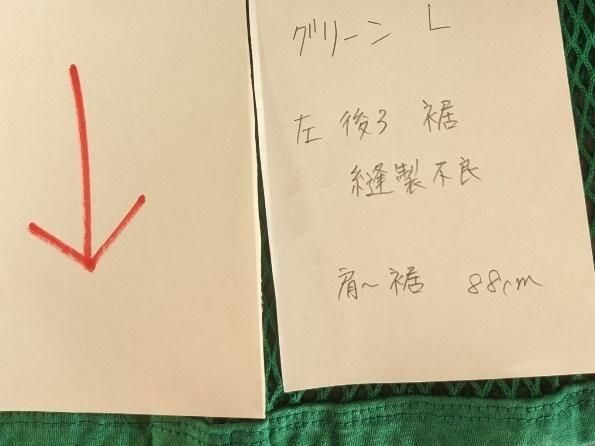 グリーン L
左 後ろ 裾
縫製不良
肩〜裾 88cm